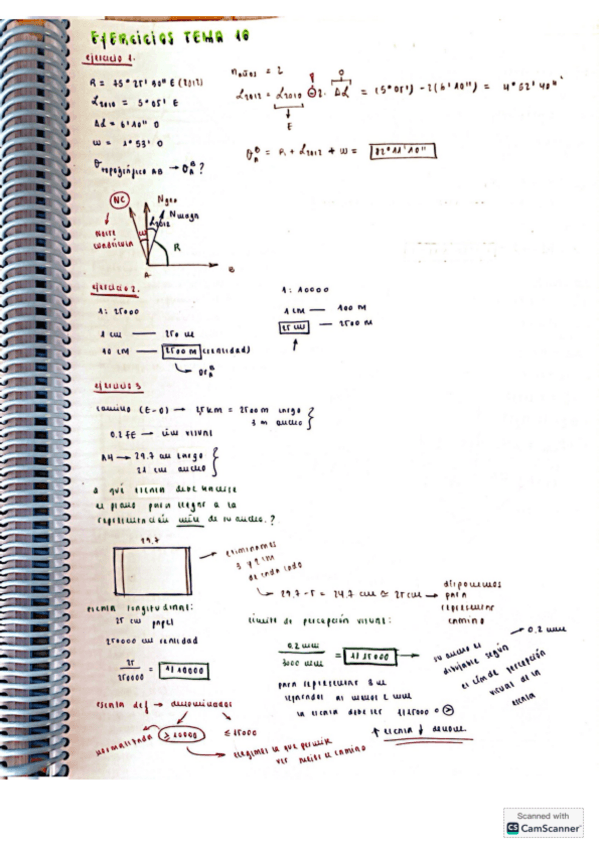 EJERCICIOS TEMA 10
ejercicio 1.
R = 75° 25' 40" E (2012)
L2010 = 5° 05' E
ΔL = 6' 10" O
w = 1° 53' O
θ topográfico AB → θ B A ?
naños = 2
L2012 = L2010 - 2· ΔL = (5° 05') - 2(6' 10") = 4° 52' 40"
E
O
θ B A = R + L2012 + w = 82° 11' 10"
NC
Ngeo
Nmagn
L2012
w
R
norte
cuadrícula
A
B
ejercicio 2.
1: 25000
1 cm — 250 m
10 cm — 2500 m (realidad)
DR B A
1: 10000
1 cm — 100 m
25 cm — 2500 m
ejercicio 3
camino (E-O) → 2'5 km = 2500 m largo
3 m ancho
0.2 → lím visual
A4 → 29.7 cm largo
21 cm ancho
a qué escala debe hacerse
el plano para llegar a la
representación mín de su ancho?
29,7
eliminamos
de cada lado
29.7 - 5 = 24.7 cm ≈ 25 cm → disponemos
para
representar
camino
escala longitudinal:
25 cm papel
250000 cm realidad
25
250000
= 1/10000
límite de percepción visual:
0.2 mm
3000 mm
= 1/15000
para representar
la escala debe ser 1/15000 o >
su ancho es
dibujable según
el lím de percepción
visual de la
escala
→ 0.2 mm
escala def → denominador
normalizada
≥ 10000
≤ 15000
elegimos la que permite
ver mejor el camino
↑ escala ↓ denom.
Scanned with
CS CamScanner